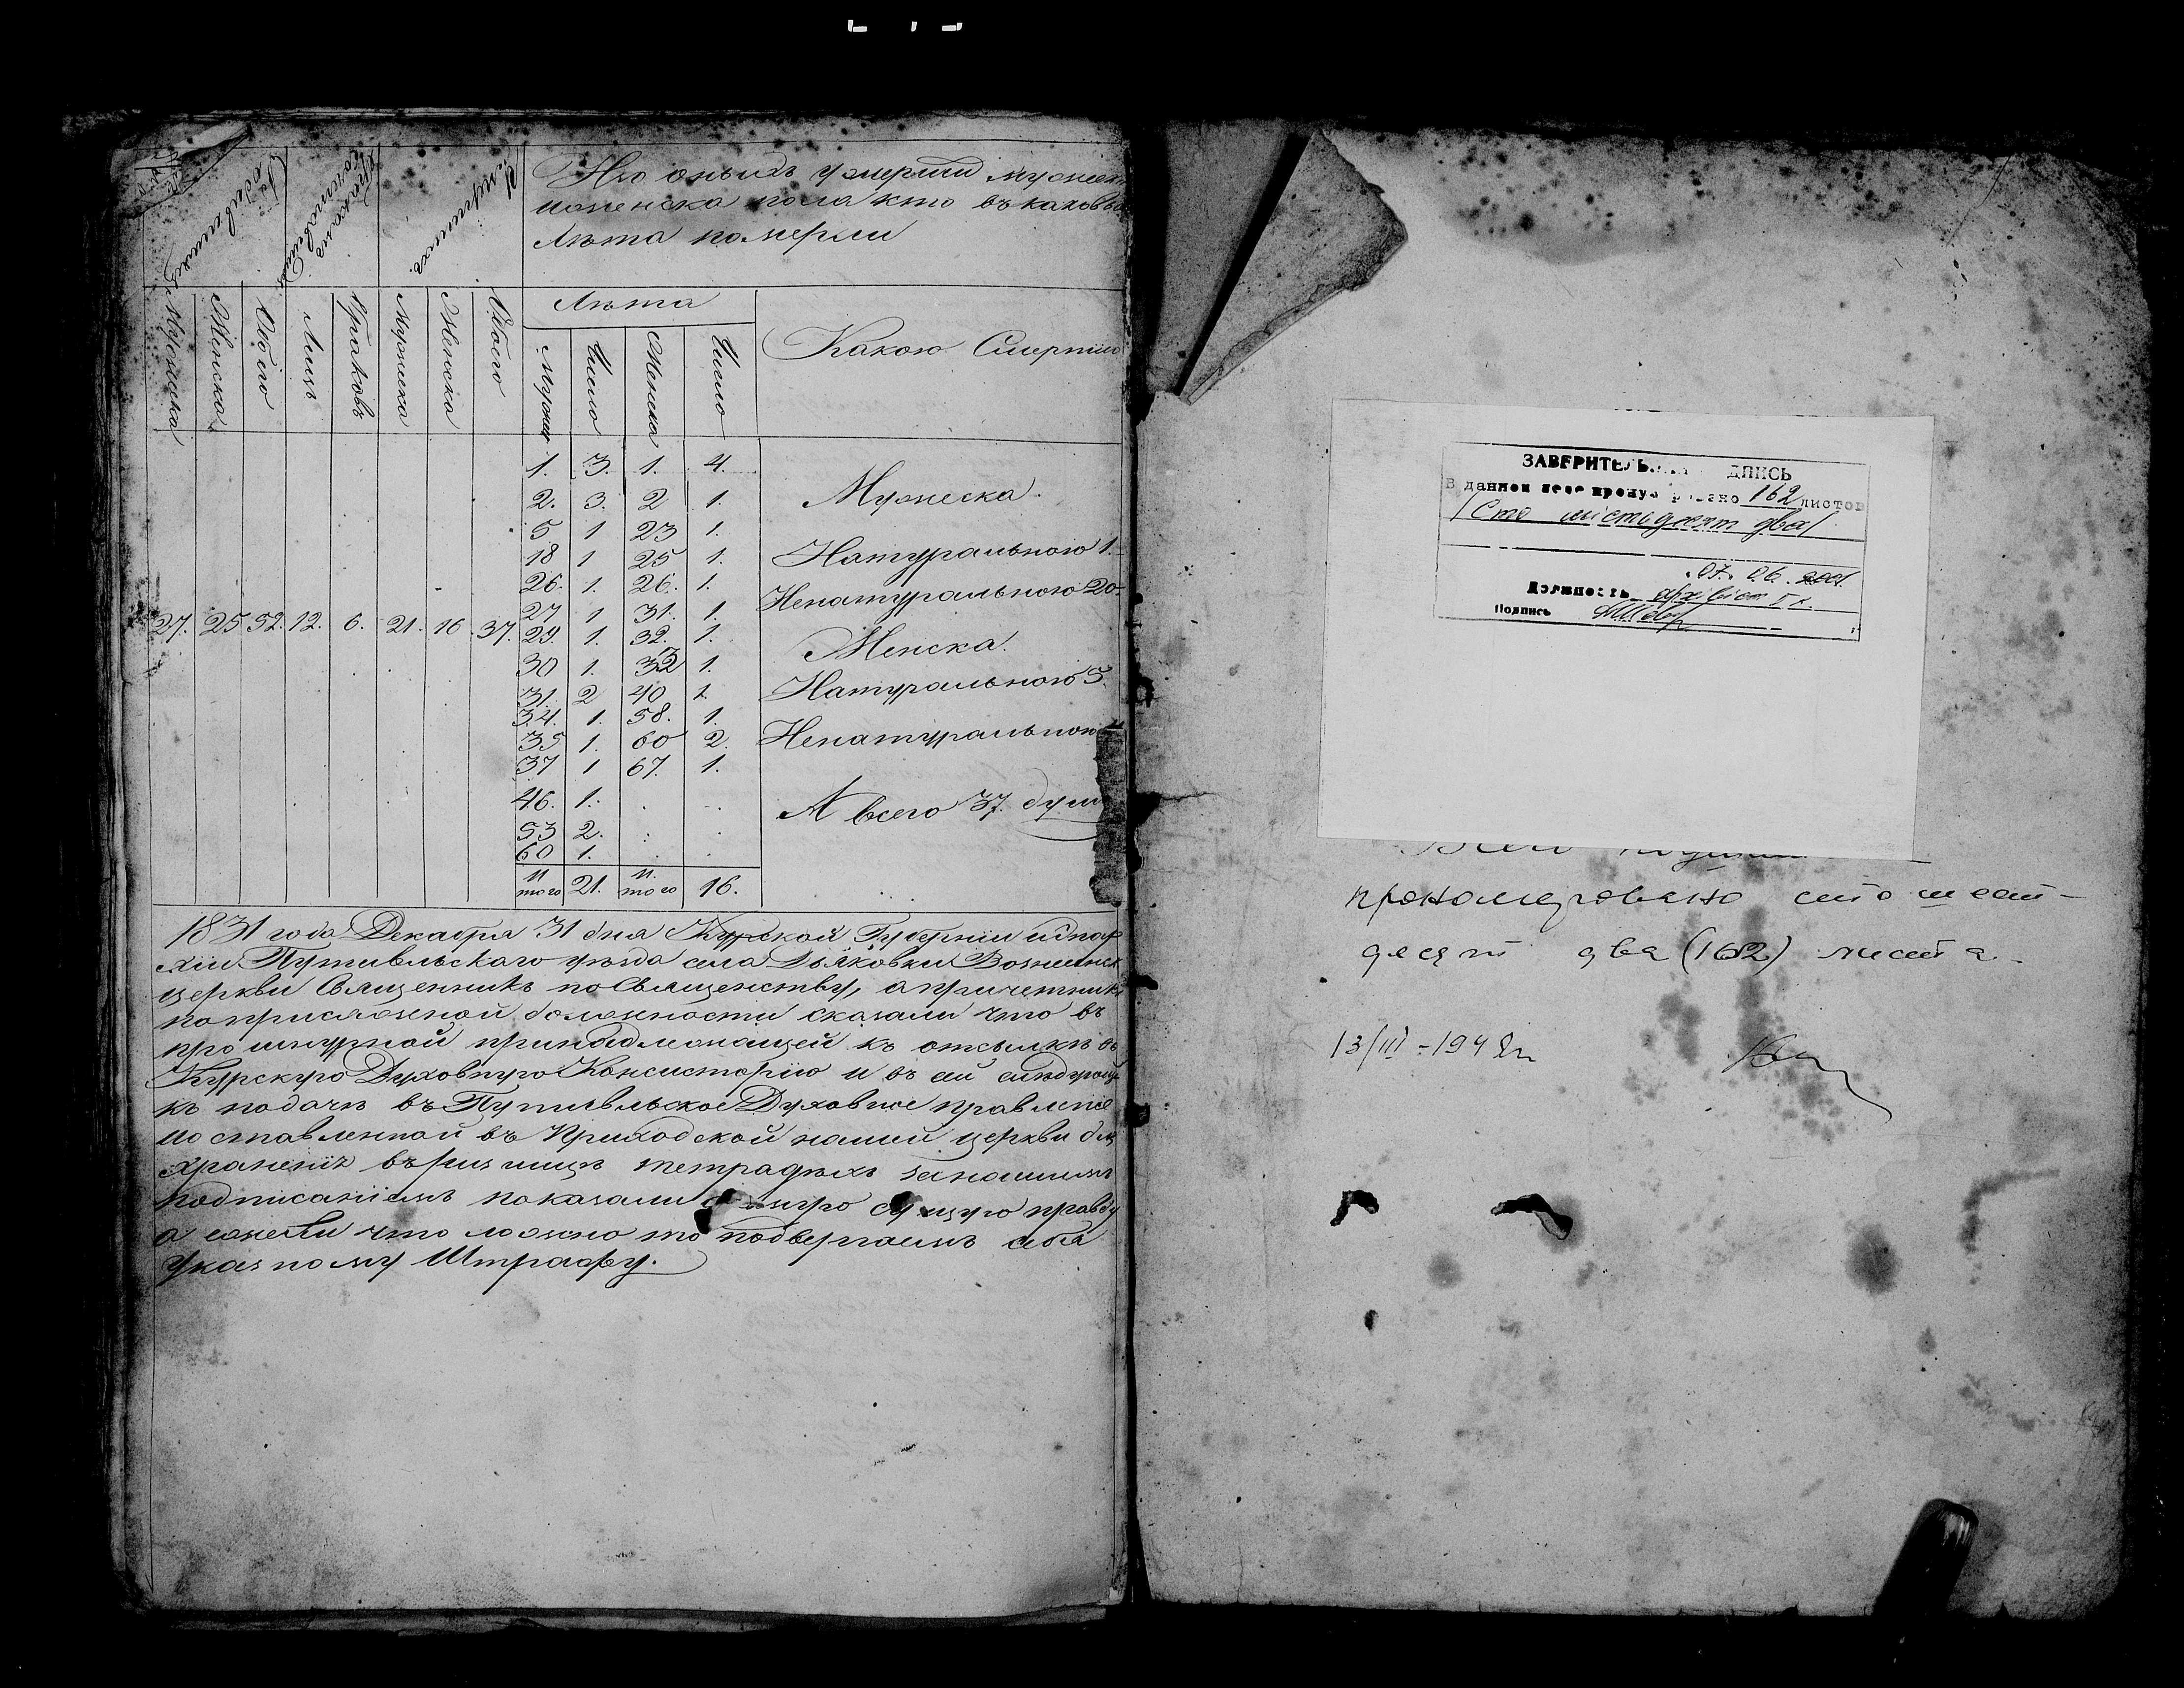 Изъ оныхъ умерши мужеск
и женска пола кто въ каковы
лѣта померли
Родившихся
Бракомъ сочетавшихся
Умершихъ
Мужеска
Женска
Обоего
Лицъ
Браковъ
Мужеска
Женска
Обоего
Лѣта
Мужска
Число
Женска
Число
Какою Смертію
1. 3. 1. 4.
2. 3. 2 1.
5 1 23 1.
18 1 25 1.
26. 1. 26. 1.
27 1 31. 1.
27. 25 52. 12. 6. 21. 16 37. 29. 1. 32. 1.
30 1. 1.
31. 2 40 1.
34. 1. 58. 1.
35 1. 60 2.
37 1 67. 1.
46. 1.
53 2.
60 1.
итого 21. итого 16.
Мужеска
Натуральною 1.
Ненатуральною 20
Женска.
Натуральною 5.
Ненатуральною
А всего 37. душ
1831 года Декабря 31 дня Курской Губерніи и Епар
хіи Путивльскаго уѣзда села Дьяковки Вознесенск
церкви Священникъ по Священству, а причетники
по присяжной должности сказали что въ
прошнурной принадлежащей къ отсылкѣ въ
Курскую Духовную Консисторію и въ сей слѣдующ
къ подачѣ въ Путивльское Духовное правленіе
и оставленной въ Приходской нашей церкви для
храненія въ ризницѣ тетрадяхъ за нашимъ
подписаніемъ показали сущую правду
а ежели что ложно то подвергаемъ себя
указному Штрафу.
ЗАВЕРИТЕЛЬ ДПИСЬ
В данном деле прону но 162 листов
/Сто шістьдесят два/
07. 06. 2001.
Должность архівіст I к.
Подпись
Всего
прономеровано сто шест-
десят два (162) листа.
13/III-194